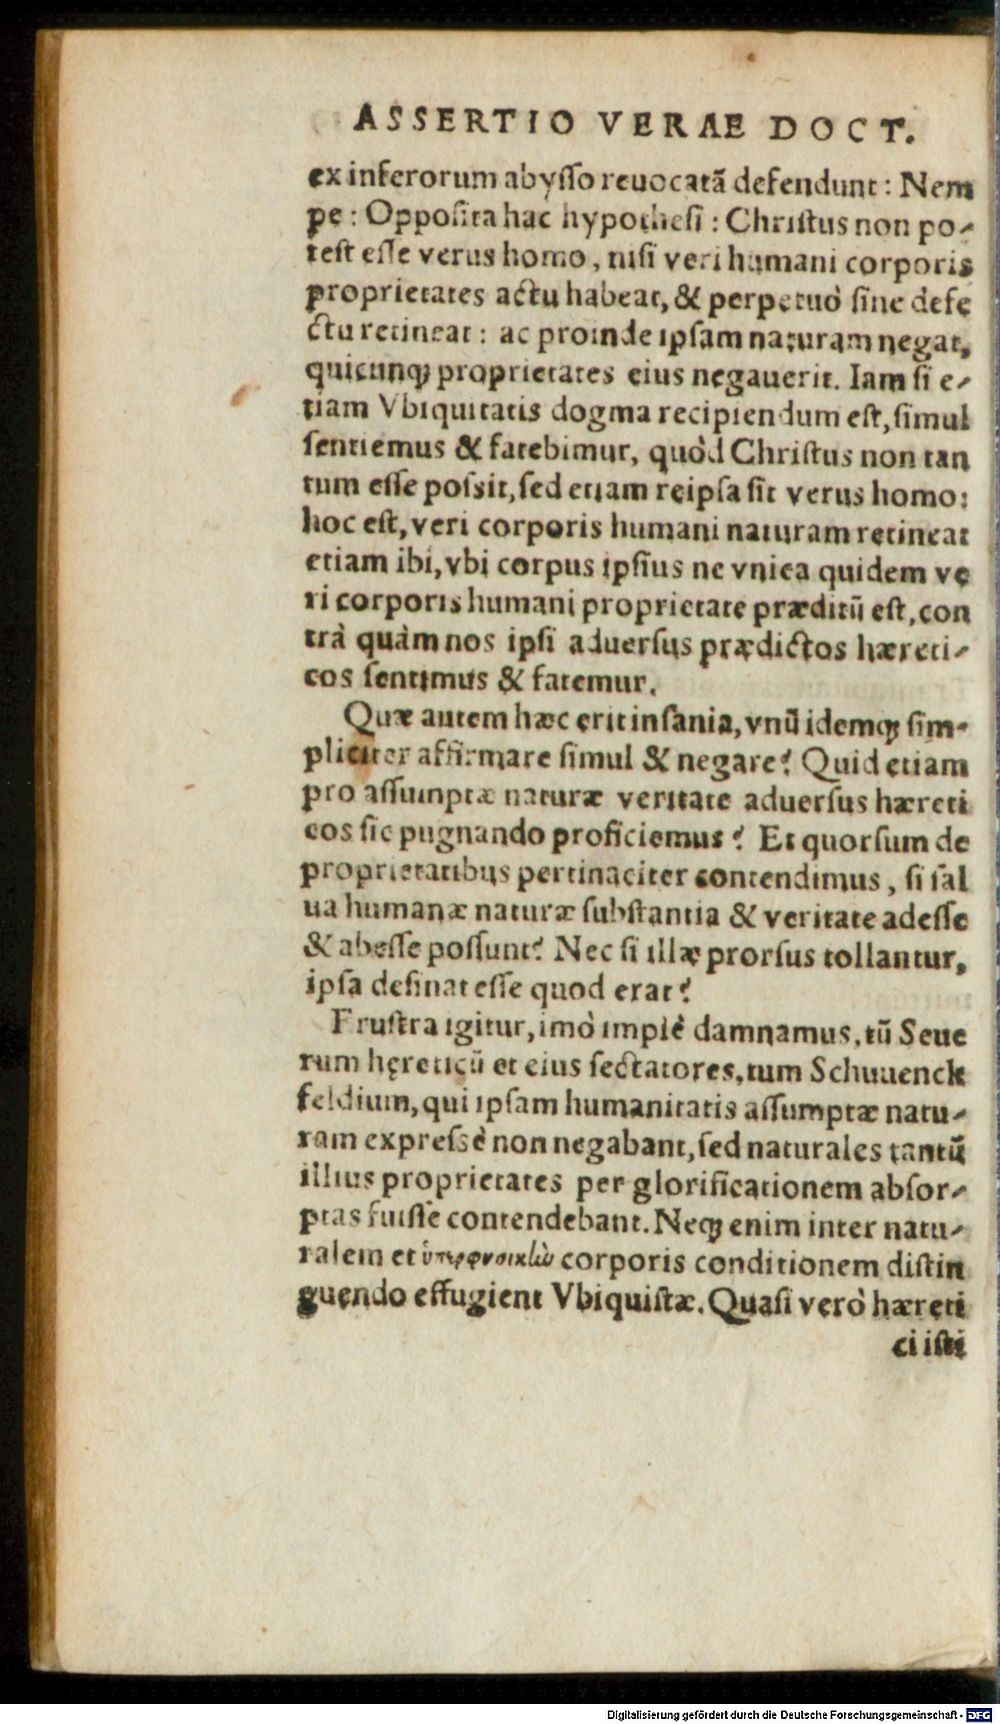 ASSERTIO VERAE DOCT.
ex inferorum abysſo reuocatã defendunt: Nem
pe: Oppoſita hac hypotheſi: Chriſtus non po-
teſt eſſe verus homo, niſi veri humani corporis
proprietates actu habeat, & perpetuò ſine defe
ctu retineat: ac proinde ipſam naturam negat,
quicunq; proprietates eius negauerit. Iam ſi e-
tiam Vbiquitatis dogma recipiendum eſt, ſimul
ſentiemus & fatebimur, quòd Chriſtus non tan
tum eſſe poſsit, ſed etiam reipſa ſit verus homo:
hoc eſt, veri corporis humani naturam retineat
etiam ibi, vbi corpus ipſius ne vnica quidem ve
ri corporis humani proprietate præditũ eſt, con
trà quàm nos ipſi aduerſus prædictos hæreti-
cos ſentimus & fatemur.
Quæ autem hæc erit inſania, vnũ idemq; ſim-
pliciter affirmare ſimul & negare? Quid etiam
pro aſſumptæ naturæ veritate aduerſus hæreti
cos ſic pugnando proficiemus? Et quorſum de
proprietatibus pertinaciter contendimus, ſi ſal
ua humanæ naturæ ſubſtantia & veritate adeſſe
& abeſſe poſſunt? Nec ſi illæ prorſus tollantur,
ipſa deſinat eſſe quod erat?
Fruſtra igitur, imò impiè damnamus, tũ Seue
rum hęreticũ et eius ſectatores, tum Schuuenck
feldium, qui ipſam humanitatis aſſumptæ natu-
ram expreſsè non negabant, ſed naturales tantũ
illius proprietates per glorificationem abſor-
ptas fuiſſe contendebant. Neq; enim inter natu-
ralem et ὑπερφυσικὴν corporis conditionem diſtin
guendo effugient Vbiquiſtæ. Quaſi verò hæreti
ci iſti
Digitalisierung gefördert durch die Deutsche Forschungsgemeinschaft - DFG